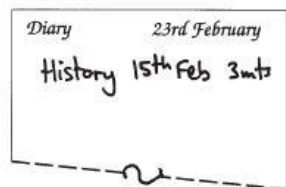 Diary 23rd February
History 15th Feb 3mts